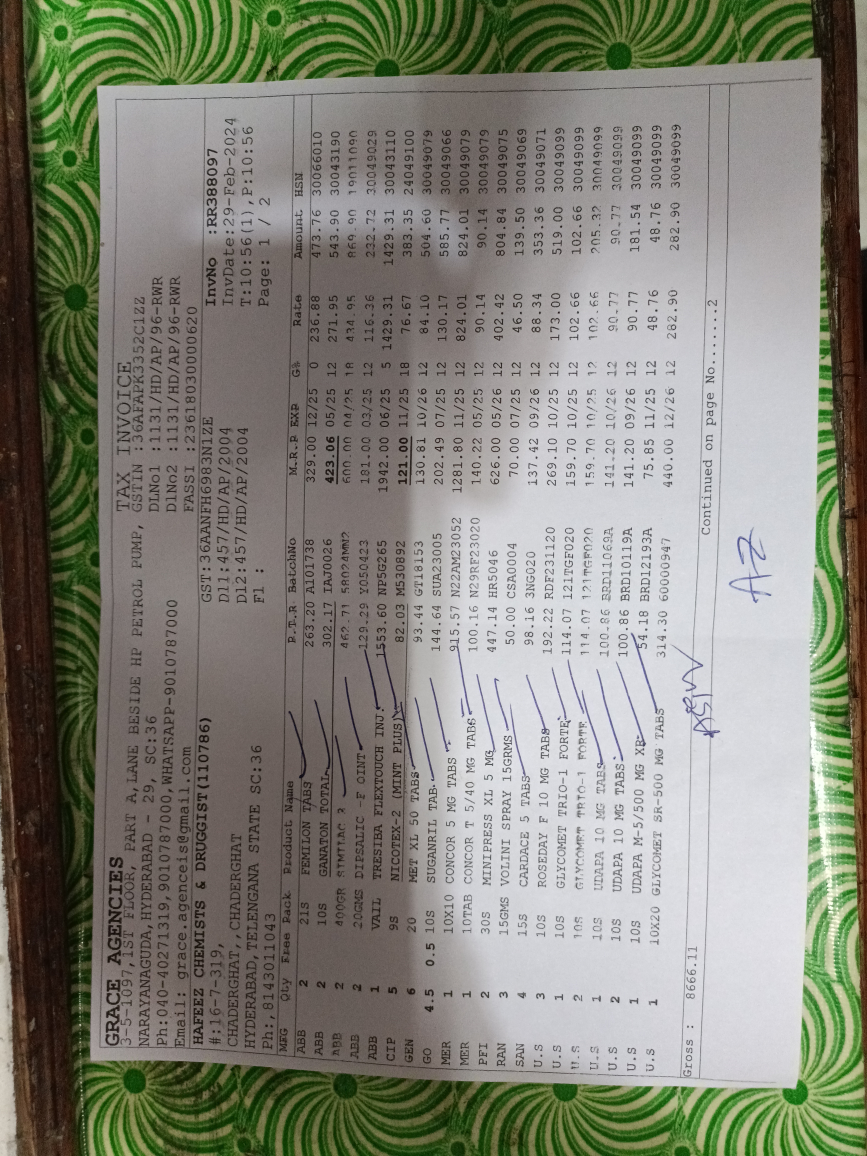 GRACE AGENCIES
3-5-1097,1ST FLOOR, PART A,LANE BESIDE HP PETROL PUMP,
NARAYANAGUDA,HYDERABAD - 29, SC:36
Ph:040-40271319,9010787000,WHATSAPP-9010787000
Email: grace.agenceis@gmail.com
TAX INVOICE
GSTIN :36AFAPK3352C1ZZ
DLNo1 :1131/HD/AP/96-RWR
DLNo2 :1131/HD/AP/96-RWR
FASSI :23618030000620
HAFEEZ CHEMISTS & DRUGGIST(110786)
#:16-7-319,
CHADERGHAT,,CHADERGHAT
HYDERABAD,TELENGANA STATE SC:36
Ph:,8143011043
GST:36AANFH6983N1ZE
Dl1:457/HD/AP/2004
Dl2:457/HD/AP/2004
Fl :
InvNo :RR388097
InvDate:29-Feb-2024
T:10:56(1),P:10:56
Page: 1 / 2
MFG Qty Free Pack Product Name P.T.R BatchNo M.R.P EXP G% Rate Amount HSN
ABB 2 21S FEMILON TABS 263.20 A101738 329.00 12/25 0 236.88 473.76 30066010
ABB 2 10S GANATON TOTAL 302.17 IAJ0026 423.06 05/25 12 271.95 543.90 30043190
ABB 2 400GR SIMILAC 3 462.71 58024MN2 600.00 04/25 18 434.95 869.90 19011090
ABB 2 20GMS DIPSALIC -F OINT 129.29 Y050423 181.00 03/25 12 116.36 232.72 30049029
ABB 1 VAIL TRESIBA FLEXTOUCH INJ. 1553.60 NP5G265 1942.00 06/25 5 1429.31 1429.31 30043110
CIP 5 9S NICOTEX-2 (MINT PLUS) 82.03 M530892 121.00 11/25 18 76.67 383.35 24049100
GEN 6 20 MET XL 50 TABS 93.44 GT18153 130.81 10/26 12 84.10 504.60 30049079
GO 4.5 0.5 10S SUGANRIL TAB. 144.64 SUA23005 202.49 07/25 12 130.17 585.77 30049066
MER 1 10X10 CONCOR 5 MG TABS 915.57 N22AM23052 1281.80 11/25 12 824.01 824.01 30049079
MER 1 10TAB CONCOR T 5/40 MG TABS 100.16 N29RF23020 140.22 05/25 12 90.14 90.14 30049079
PFI 2 30S MINIPRESS XL 5 MG 447.14 HR5046 626.00 05/26 12 402.42 804.84 30049075
RAN 3 15GMS VOLINI SPRAY 15GRMS 50.00 CSA0004 70.00 07/25 12 46.50 139.50 30049069
SAN 4 15S CARDACE 5 TABS 98.16 3NG020 137.42 09/26 12 88.34 353.36 30049071
U.S 3 10S ROSEDAY F 10 MG TABS 192.22 RDF231120 269.10 10/25 12 173.00 519.00 30049099
U.S 1 10S GLYCOMET TRIO-1 FORTE 114.07 121TGF020 159.70 10/25 12 102.66 102.66 30049099
U.S 2 10S GLYCOMET TRIO-1 FORTE 114.07 121TGF020 159.70 10/25 12 102.66 205.32 30049099
U.S 1 10S UDAPA 10 MG TABS 100.86 BRD11069A 141.20 10/26 12 90.77 90.77 30049099
U.S 2 10S UDAPA 10 MG TABS 100.86 BRD10119A 141.20 09/26 12 90.77 181.54 30049099
U.S 1 10S UDAPA M-5/500 MG XR 54.18 BRD12193A 75.85 11/25 12 48.76 48.76 30049099
U.S 1 10X20 GLYCOMET SR-500 MG TABS 314.30 60000947 440.00 12/26 12 282.90 282.90 30049099
Gross : 8666.11
Continued on page No.......2
AZ